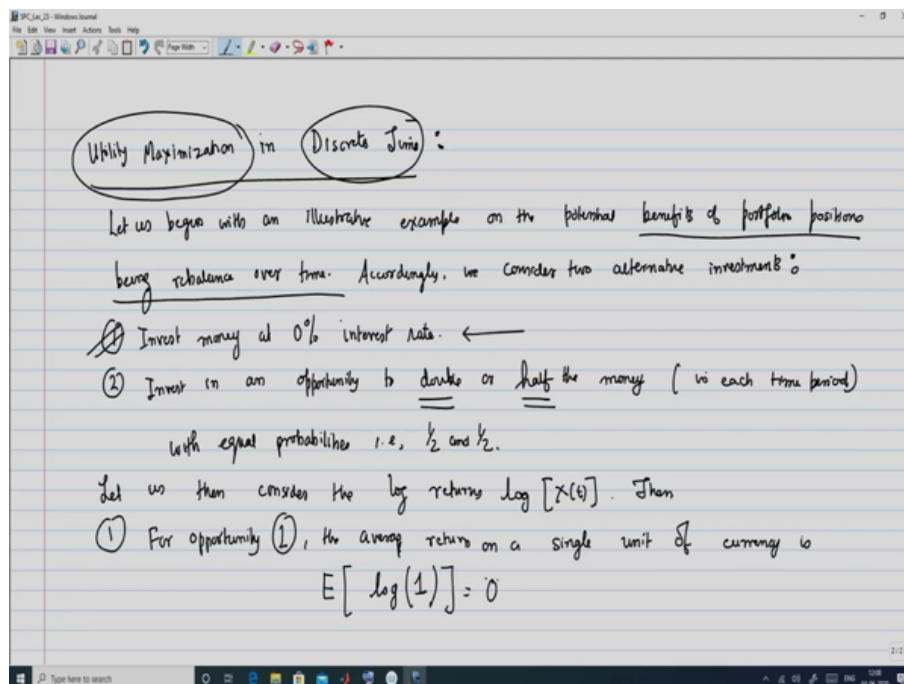 SPC_Lec_23 - Windows Journal
File Edit View Insert Actions Tools Help
Page Width
Utility Maximization in Discrete Time :
Let us begin with an illustrative example on the potential benefits of portfolio positions
being rebalance over time. Accordingly, we consider two alternative investments :
① Invest money at 0% interest rate. ←
② Invest in an opportunity to double or half the money ( in each time period)
with equal probabilities i.e, 1/2 and 1/2.
Let us then consider the log returns log [X(t)]. Then
① For opportunity ①, the average return on a single unit of currency is
E[ log(1)] = 0
2/2
Type here to search
ENG